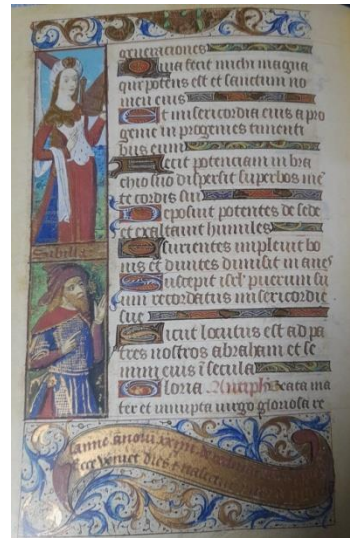 generaciones
Quia fecit michi magna
qui potens est et sanctum no
men eius
Et misericordia eius a pro
genie in progenies timenti
bus eum
Fecit potenciam in bra
chio suo dispersit superbos me
te cordis sui
Deposuit potentes de sede
et exaltauit humiles
Esurientes impleuit bo
nis et diuites dimisit in anes
Suscepit isrl' puerum su
um recordatus misericordie
sue
Sicut locutus est ad pa
tres nostros abraham et se
mini eius i secula
Gloria Antiph Beata ma
ter et innupta uirgo gloriosa re
Sibilla
dies